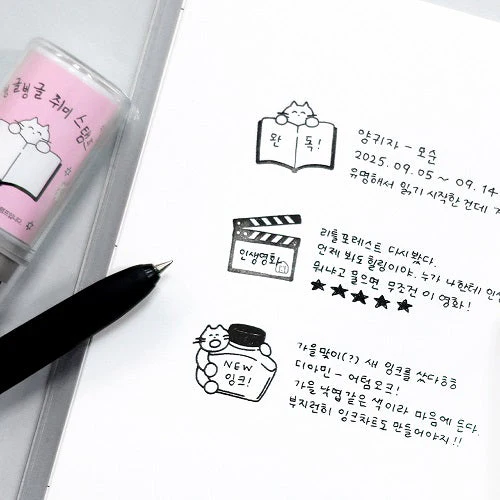 글병글 취미 스탬프
완 독!
양귀자 - 모순
2025.09.05 ~ 09.14
유명해서 읽기 시작한 건데
인생영화
리틀 포레스트 다시 봤다.
언제 봐도 힐링이야. 누가 나한테 인생
뭐냐고 물으면 무조건 이 영화!
NEW
잉크!
가을맞이(?) 새 잉크를 샀다ㅎㅎ
디아민 - 어텀오크!
가을 낙엽같은 색이라 마음에 든다.
부지런히 잉크차트도 만들어야지!!